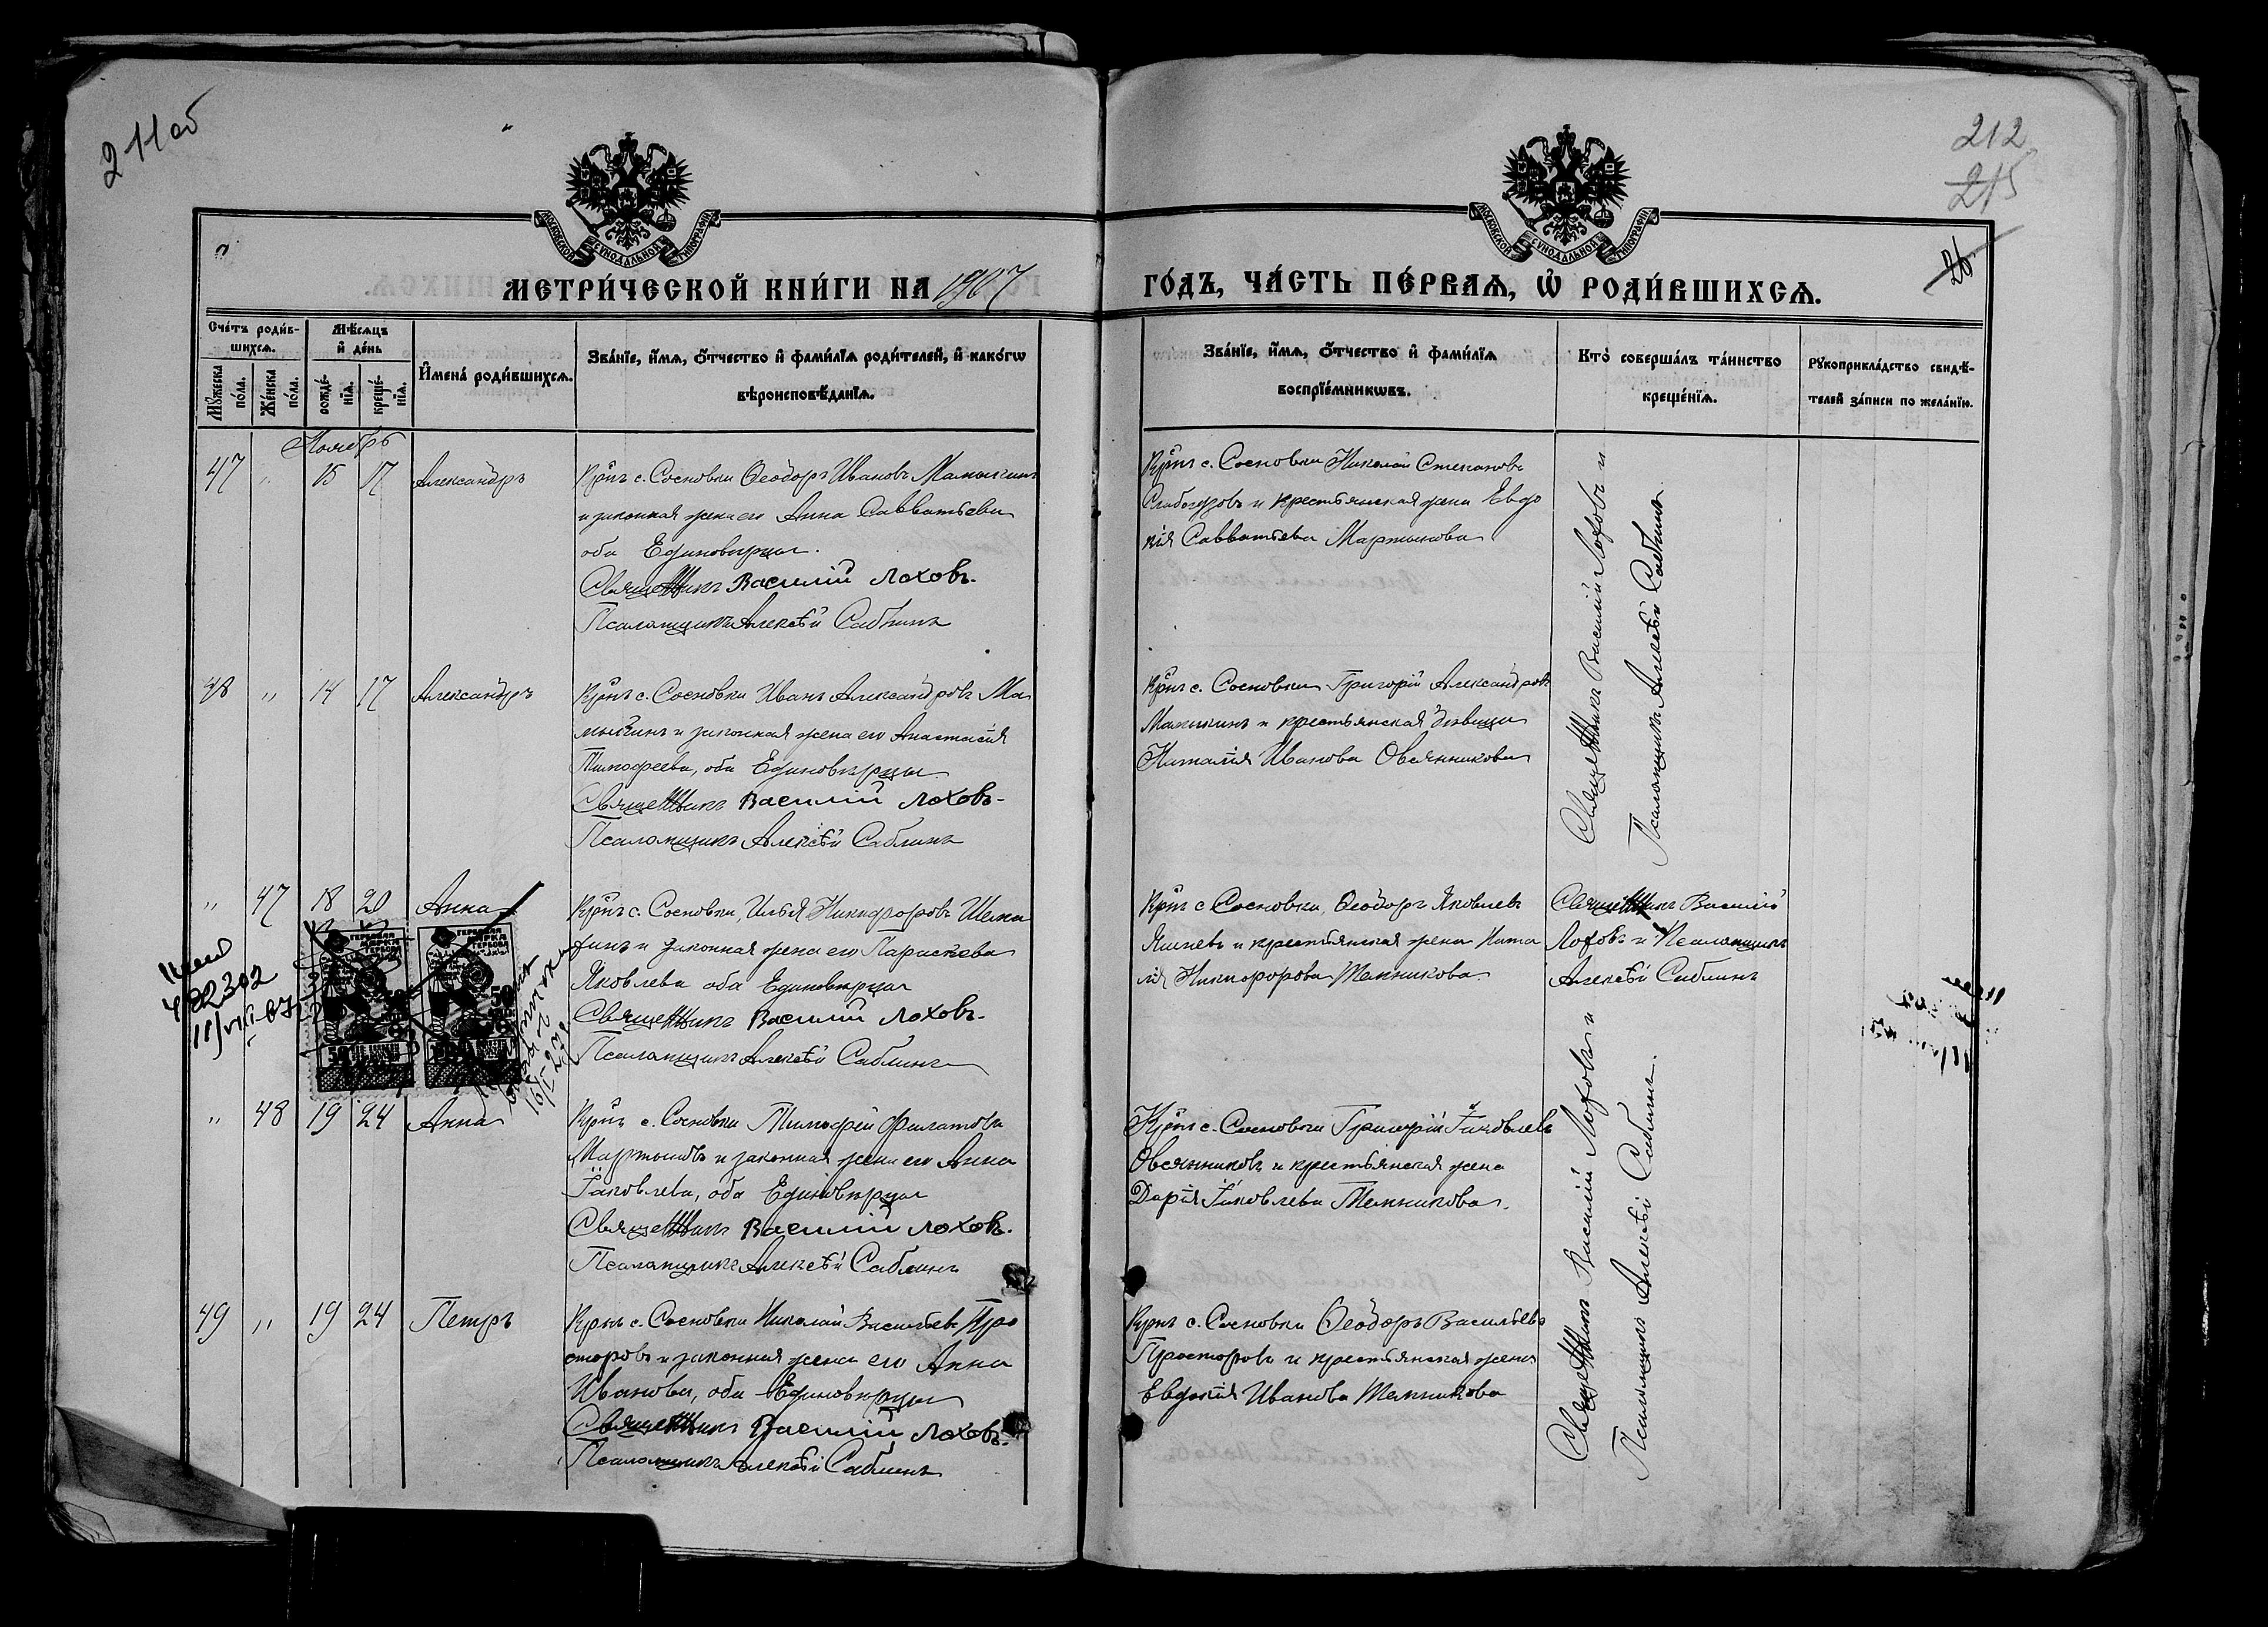 211 об
212
215
26
МОСКОВСКОЙ СѴНОДАЛЬНОЙ ТИПОГРАФІИ
МОСКОВСКОЙ СѴНОДАЛЬНОЙ ТИПОГРАФІИ
МЕТРИ́ЧЕСКОЙ КНИ́ГИ НА 1907
ГО́ДЪ, ЧА́СТЬ ПЕ́РВАѦ, Ѡ҆ РОДИ́ВШИХСѦ.
Сче́тъ роди́в-
шихсѧ.
Мꙋ́жеска по́ла.
Же́нска по́ла.
Мѣ́сѧцъ
и҆ де́нь
рожде́-
нїѧ.
креще́-
нїѧ.
И҆мена̀ роди́вшихсѧ.
Зва́нїе, и҆́мѧ, ѻ҆́тчество и҆ фами́лїѧ роди́телей, и҆ како́гѡ
вѣроисповѣ́данїѧ.
Зва́нїе, и҆́мѧ, ѻ҆́тчество и҆ фами́лїѧ
воспрїе́мникѡвъ.
Кто̀ соверша́лъ та́инство
креще́нїѧ.
Рꙋкоприкла́дство свидѣ́-
телей за́писи по жела́нїю.
Ноябрь
47 " 15 17 Александръ
Крѣнъ с. Сосновки Ѳеодоръ Ивановъ Мамыкинъ
и законная жена его Анна Савватьева
оба Единовѣрцы.
Священникъ Василій Лоховъ.
Псаломщикъ Алексѣй Саблинъ
Крѣнъ с. Сосновки Николай Степановъ
и крестьянская жена Евдо
кія Савватьева Мартынова
Священникъ Василій Лоховъ и
Псаломщикъ Алексѣй Саблинъ
48 " 14 17 Александръ
Крѣнъ с. Сосновки Иванъ Александровъ Ма
мыкинъ и законная жена его Анастасія
Тимофеева, оба Единовѣрцы
Священникъ Василій Лоховъ.
Псаломщикъ Алексѣй Саблинъ
Крѣнъ с. Сосновки Григорій Александровъ
Мамыкинъ и крестьянская дѣвица
Наталія Иванова Овсянникова
" 47 18 20 Анна
Крѣнъ с. Сосновки, Илья Никифоровъ
и законная жена его Параскева
Яковлева оба Единовѣрцы
Священникъ Василій Лоховъ.
Псаломщикъ Алексѣй Саблинъ
Крѣнъ с Сосновки, Ѳеодоръ Яковлевъ
и крестьянская жена Ната
лія Никифорова Темникова
Священникъ Василій
Лоховъ и Псаломщикъ
Алексѣй Саблинъ
ГЕРБОВАЯ
МАРКА
50
ГЕРБОВАЯ
МАРКА
50
" 48 19 24 Анна
Крѣнъ с. Сосновки Тимофей Филатовъ
Мартыновъ и законная жена его Анна
Іаковлева, оба Единовѣрцы
Священникъ Василій Лоховъ.
Псаломщикъ Алексѣй Саблинъ
Крѣнъ с. Сосновки Григорій Іаковлевъ
Овсянниковъ и крестьянская жена
Дарія Іаковлева Темникова.
Священникъ Василій Лоховъ и
Псаломщикъ Алексѣй Саблинъ.
49 " 19 24 Петръ
Крѣнъ с. Сосновки Николай Васильевъ Про
сторовъ и законная жена его Анна
Иванова, оба Единовѣрцы
Священникъ Василій Лоховъ.
Псаломщикъ Алексѣй Саблинъ
Крѣнъ с. Сосновки Ѳеодоръ Васильевъ
Просторовъ и крестьянская жена
Евдокія Иванова Темникова